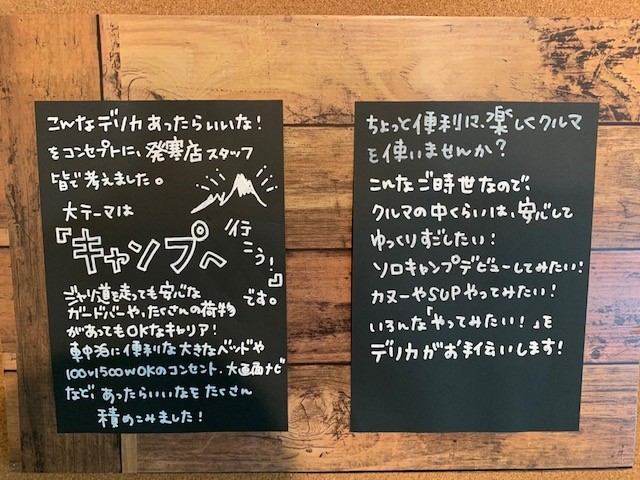 こんなデリカあったらいいな!
をコンセプトに、発寒店スタッフ
皆で考えました。
大テーマは
『キャンプへ
行こう!』
です。
ジャリ道を走っても安心な
ガードバーや、たくさんの荷物
があってもOKなキャリア!
車中泊に便利な大きなベッドや
100V1500WOKのコンセント、大画面ナビ
など、あったらいいなをたくさん
積めこみました!
ちょっと便利に、楽しくクルマ
を使いませんか?
こんなご時世なので、
クルマの中くらいは、安心して
ゆっくりすごしたい!
ソロキャンプデビューしてみたい!
カヌーやSUPやってみたい!
いろんな「やってみたい!」を
デリカがお手伝いします!